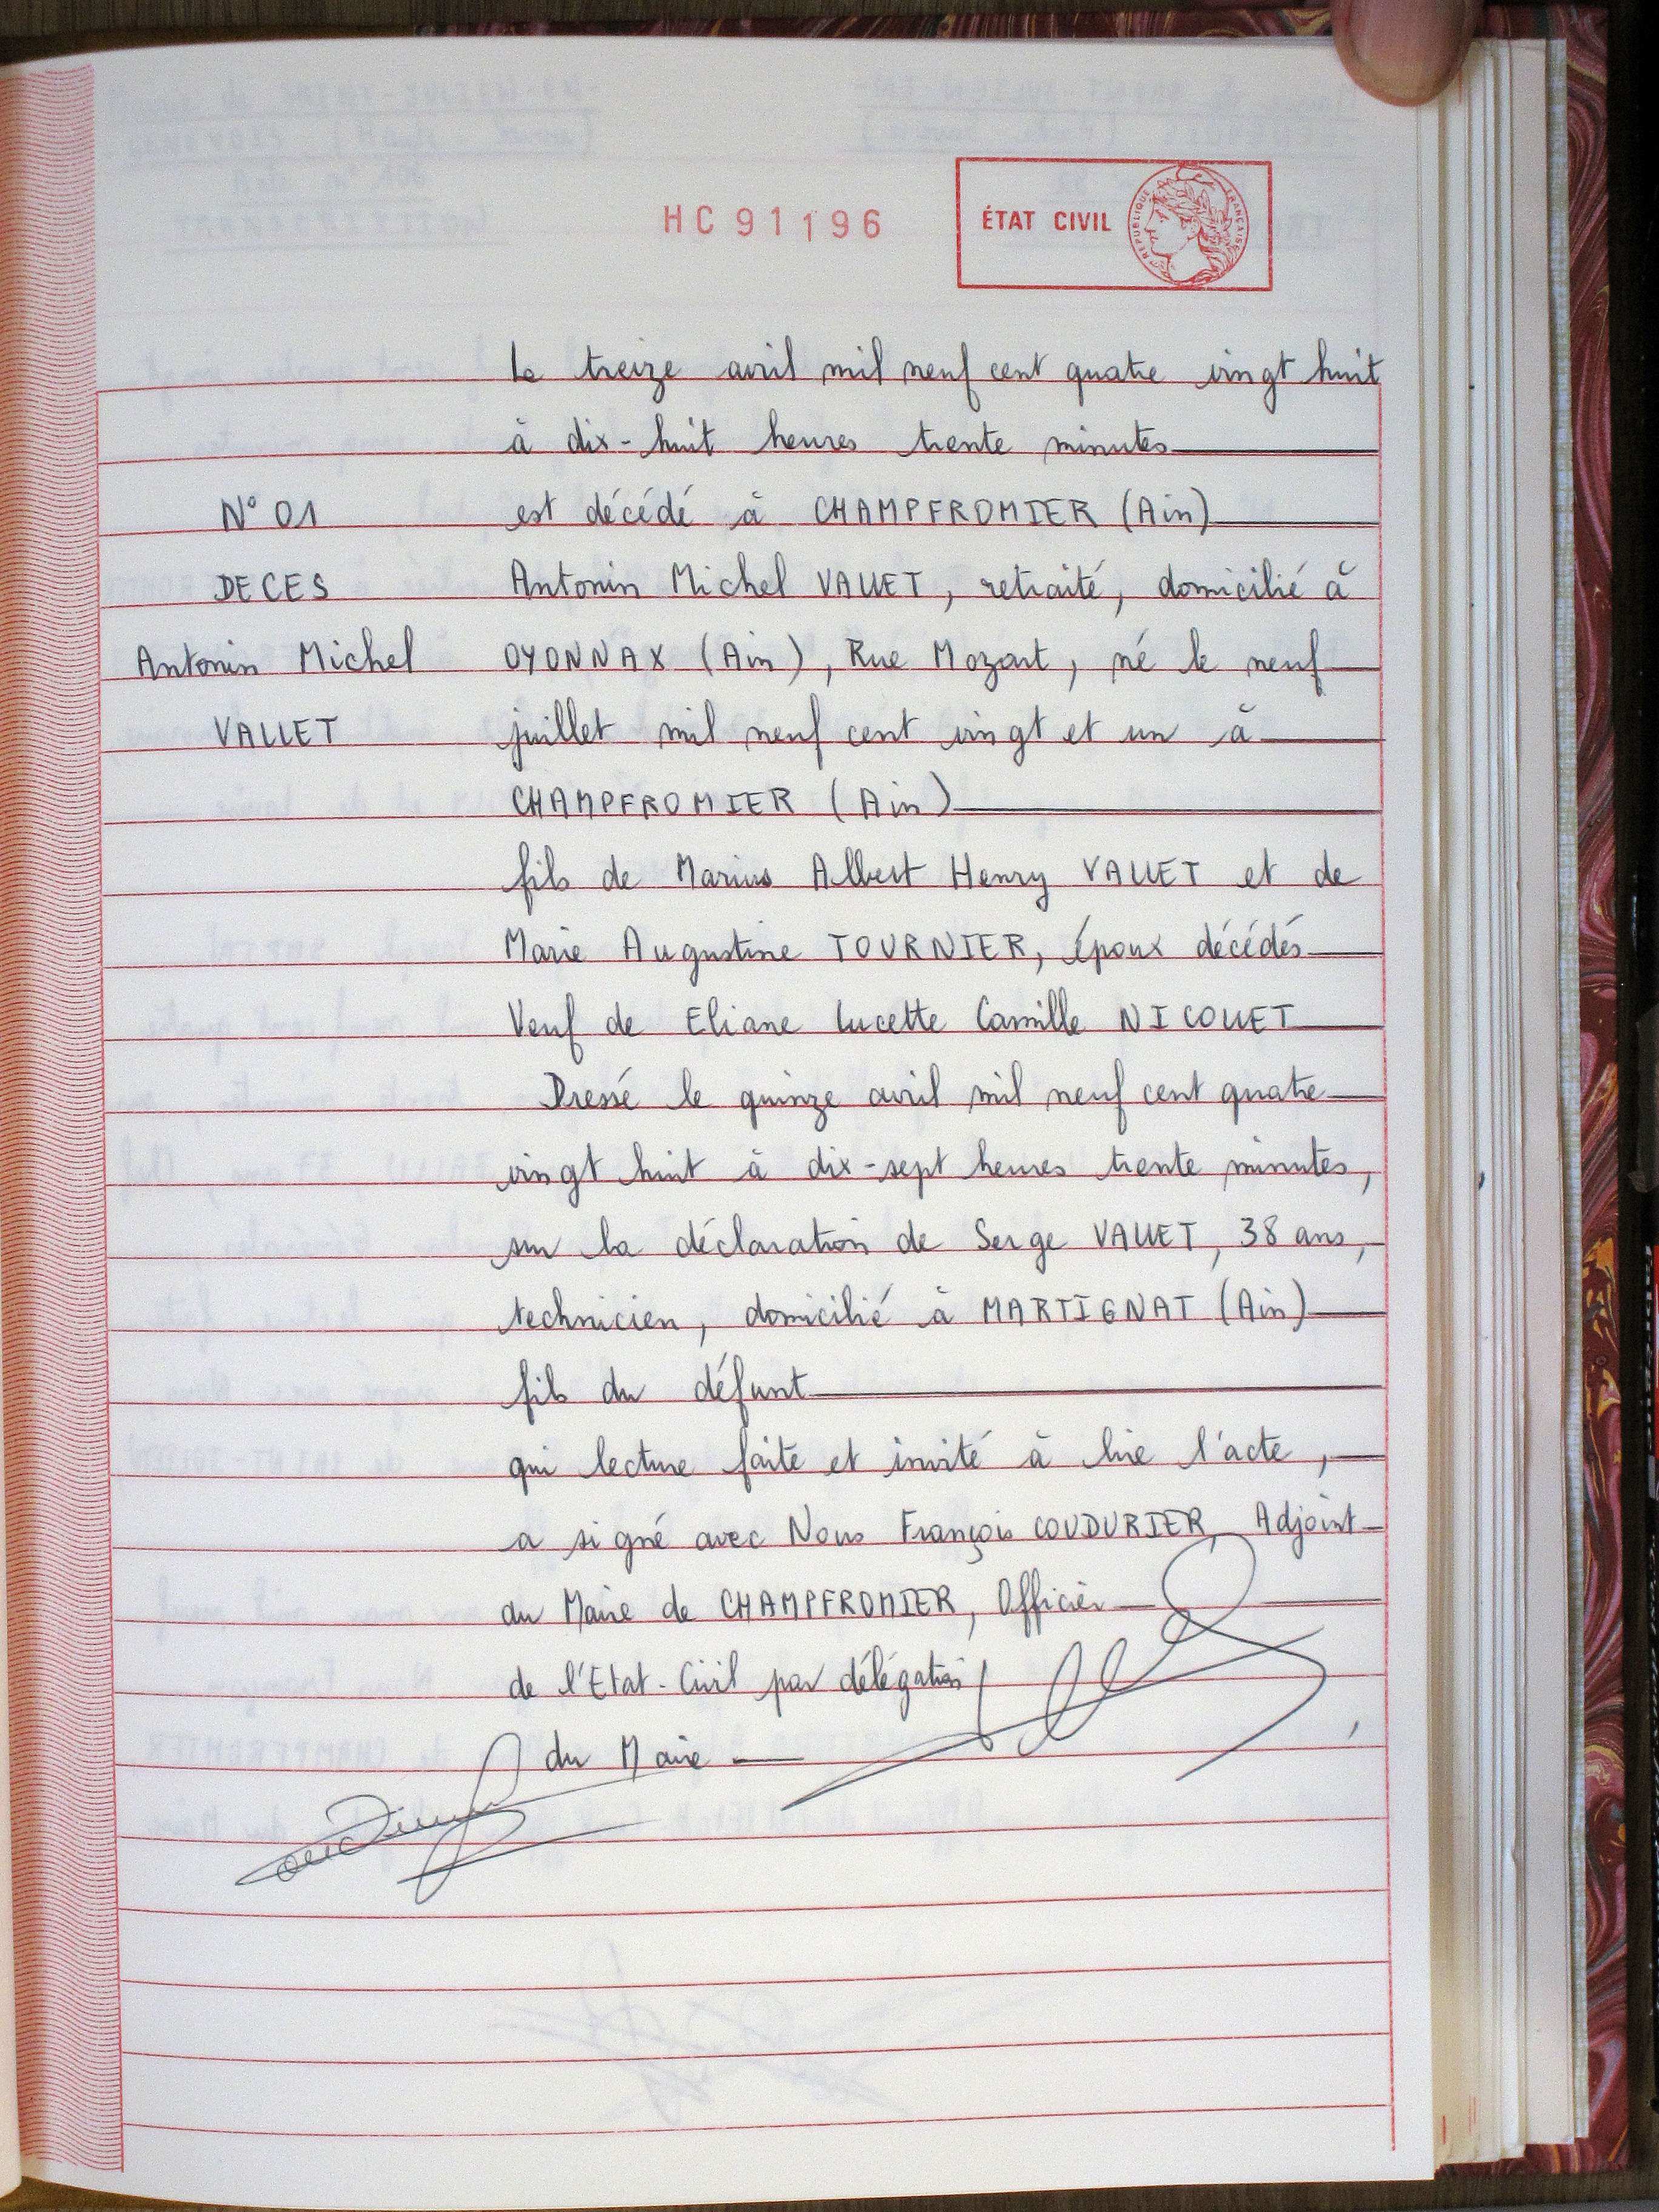 HC 91196
ÉTAT CIVIL
RÉPUBLIQUE FRANÇAISE
Le treize avril mil neuf cent quatre vingt huit
à dix-huit heures trente minutes
N° 01
est décédé à CHAMPFROMIER (Ain)
DECES
Antonin Michel VALLET, retraité, domicilié à
Antonin Michel
OYONNAX (Ain), Rue Mozart, né le neuf
VALLET
juillet mil neuf cent vingt et un à
CHAMPFROMIER (Ain)
fils de Marius Albert Henry VALLET et de
Marie Augustine TOURNIER, époux décédés
Veuf de Eliane Lucette Camille NICOLLET
Dressé le quinze avril mil neuf cent quatre
vingt huit à dix-sept heures trente minutes,
sur la déclaration de Serge VALLET, 38 ans,
technicien, domicilié à MARTIGNAT (Ain)
fils du défunt
qui lecture faite et invité à lire l'acte,
a signé avec Nous François COUDURIER, Adjoint
au Maire de CHAMPFROMIER, Officier
de l'Etat-Civil par délégation
du Maire